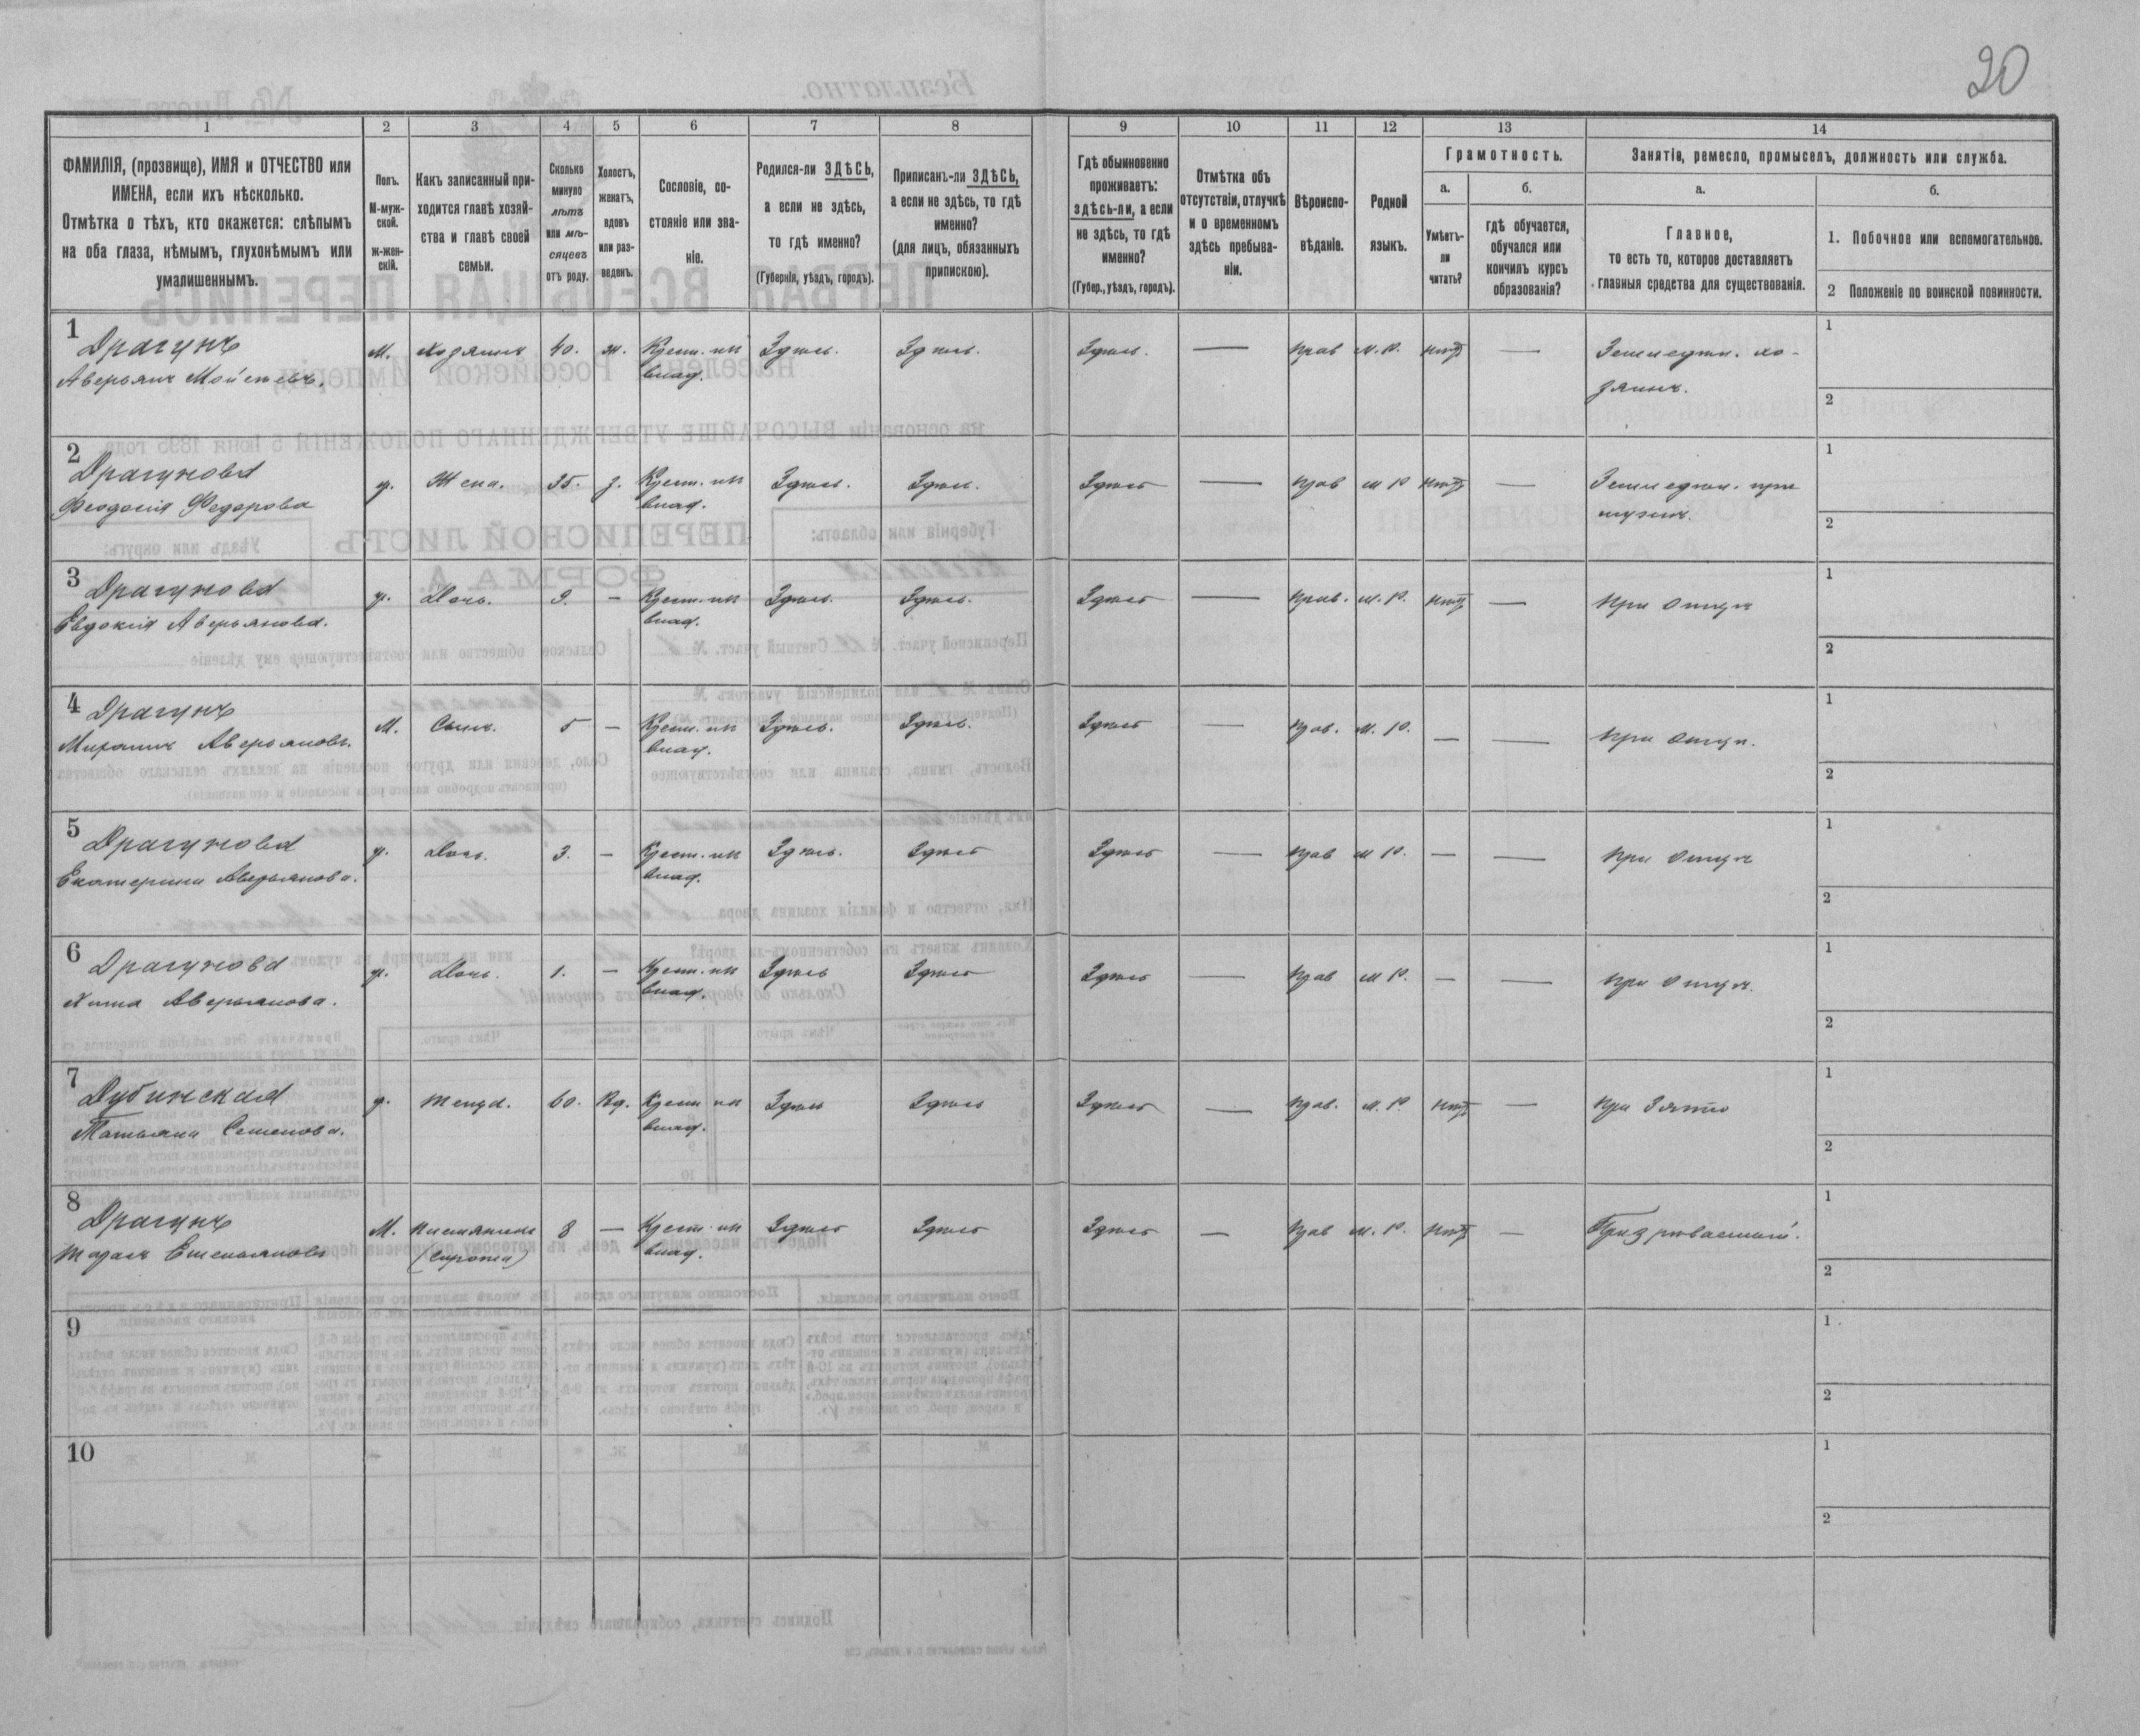 20
1 2 3 4 5 6 7 8 9 10 11 12 13 14
ФАМИЛІЯ, (прозвище), ИМЯ и ОТЧЕСТВО или
ИМЕНА, если ихъ нѣсколько.
Отмѣтка о тѣхъ, кто окажется: слѣпымъ
на оба глаза, нѣмымъ, глухонѣмымъ или
умалишеннымъ.
Полъ.
М-муж-
ской.
Ж-жен-
скій.
Какъ записанный при-
ходится главѣ хозяй-
ства и главѣ своей
семьи.
Сколько
минуло
лѣтъ
или мѣ-
сяцевъ
отъ роду.
Холостъ,
женатъ,
вдовъ
или раз-
веденъ.
Сословіе, со-
стояніе или зва-
ніе.
Родился-ли ЗДѢСЬ,
а если не здѣсь,
то гдѣ именно?
(Губернія, уѣздъ, городъ).
Приписанъ-ли ЗДѢСЬ,
а если не здѣсь, то гдѣ
именно?
(для лицъ, обязанныхъ
припискою).
Гдѣ обыкновенно
проживаетъ:
здѣсь-ли, а если
не здѣсь, то гдѣ
именно?
(Губер., уѣздъ, городъ).
Отмѣтка объ
отсутствіи, отлучкѣ
и о временномъ
здѣсь пребыва-
ніи.
Вѣроиспо-
вѣданіе.
Родной
языкъ.
Грамотность.
а.
Умѣетъ-
ли
читать?
б.
гдѣ обучается,
обучался или
кончилъ курсъ
образованія?
Занятіе, ремесло, промыселъ, должность или служба.
а.
Главное,
то есть то, которое доставляетъ
главныя средства для существованія.
б.
1. Побочное или вспомогательное.
2 Положеніе по воинской повинности.
1
Драгунъ М. Хозяинъ 40. ж. Крест. из Здѣсь. Здѣсь. Здѣсь. — прав м.р. нѣтъ — Земледѣл. хо-
Аверьянъ Мойсеевъ. влад. зяинъ.
1
2
2
Драгунова ж. Жена. 35. з. Крест. из Здѣсь. Здѣсь. Здѣсь — прав м р нѣтъ — Земледѣл. при
Феодосія Федорова влад. мужѣ.
1
2
3
Драгунова ж. Дочь. 9. — Крест. из Здѣсь. Здѣсь. Здѣсь — прав. м.р. нѣтъ — при отцѣ
Евдокія Аверьянова. влад.
1
2
4
Драгунъ М. Сынъ. 5 — Крест. из Здѣсь. Здѣсь. Здѣсь — прав. м.р. — — при отцѣ.
Аверьяновъ. влад.
1
2
5
Драгунова ж. Дочь. 3. — Крест. из Здѣсь. Здѣсь Здѣсь — прав м р. — — при отцѣ
Екатерина Аверьянова. влад.
1
2
6
Драгунова ж. Дочь. 1. — Крест. из Здѣсь Здѣсь Здѣсь — прав м р. — — при отцѣ.
Аверьянова. влад.
1
2
7
Дубинская ж. теща. 60. вд. Крест из Здѣсь Здѣсь Здѣсь — прав. м.р. нѣтъ — при Зятѣ
Татьяна Семенова. влад.
1
2
8
Драгунъ М. племянникъ 8 — Крест из Здѣсь Здѣсь Здѣсь — прав м.р. нѣтъ — Призрѣваемый.
Емельяновъ (сирота) влад.
1
2
9
1
2
10
1
2